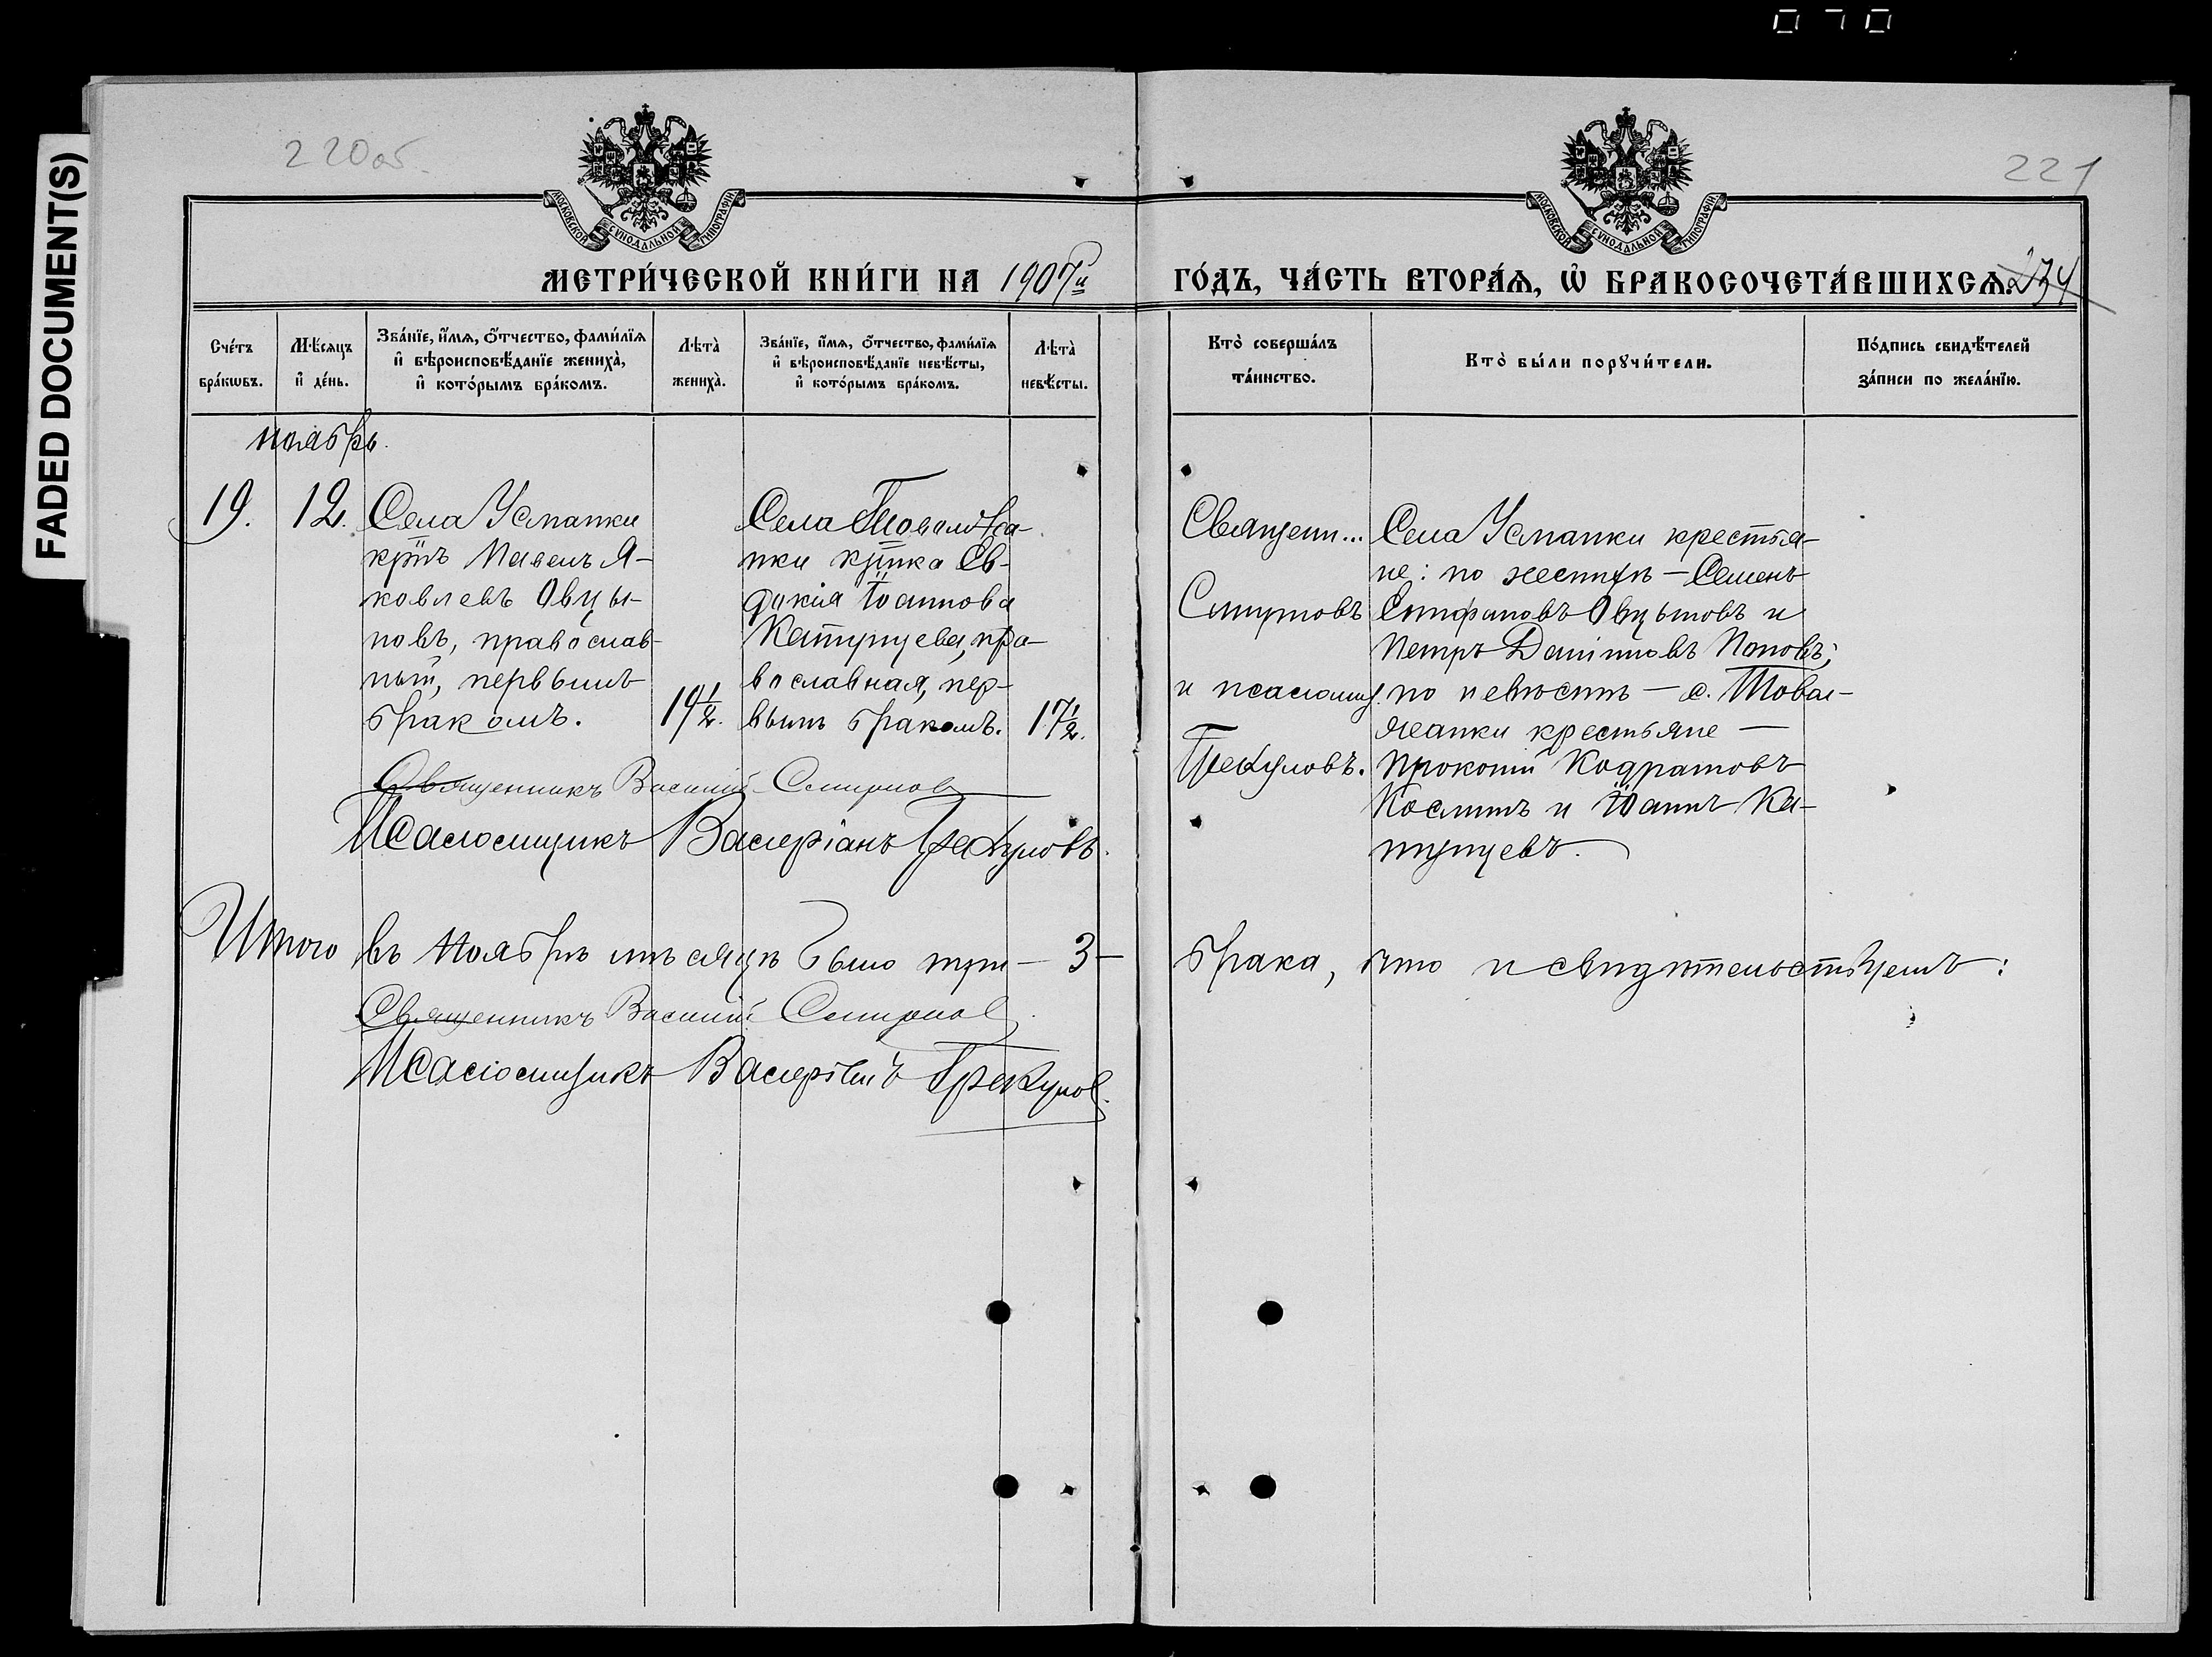 070
FADED DOCUMENT(S)
220об.
221
МОСКОВСКОЙ СѴНОДАЛЬНОЙ ТИПОГРАФІИ
МОСКОВСКОЙ СѴНОДАЛЬНОЙ ТИПОГРАФІИ
МЕТРИ́ЧЕСКОЙ КНИ́ГИ НА 1907й ГО́ДЪ, ЧА́СТЬ ВТОРА́Ѧ, Ѽ БРАКОСОЧЕТА́ВШИХСѦ. 234
Сче́тъ бра́кѡвъ.
Мѣ́сяцъ и҆ де́нь.
Зва́нїе, и҆́мѧ, ѻ҆́тчество, фами́лїѧ и҆ вѣроисповѣ́данїе жениха̀, и҆ кото́рымъ бра́комъ.
Лѣта̀ жениха̀.
Зва́нїе, и҆́мѧ, ѻ҆́тчество, фами́лїѧ и҆ вѣроисповѣ́данїе невѣ́сты, и҆ кото́рымъ бра́комъ.
Лѣта̀ невѣ́сты.
Кто̀ соверша́лъ та́инство.
Кто̀ бы́ли порꙋчи́тели.
По́дпись свидѣ́телей за́писи по жела́нїю.
Ноябрь.
19.
12.
Села Усманки
крнъ Павелъ Я-
ковлевъ Овцы-
новъ, православ-
ный, первымъ
бракомъ.
19½.
Села
нки крнка Ев-
докія Іоаннова
Катунцева, пра-
вославная, пер-
вымъ бракомъ.
17½.
Священн...
Смирновъ
и псаломщ.
Трекуловъ.
Села Усманки крестья-
не: по женихѣ – Семенъ
Стефановъ Овцыновъ и
Петръ Даніиловъ Поповъ;
по невѣстѣ – с. Товол-
жанки крестьяне –
Прокопій Кодратовъ
и Іоаннъ Ка-
тунцевъ.
Священникъ Василій Смирновъ
Псаломщикъ Валеріанъ Трекуловъ.
Итого въ Ноябрѣ мѣсяцѣ было три – 3 – брака, что и свидѣтельствуемъ:
Священникъ Василій Смирнов
Псаломщикъ Валеріанъ Трекулов.